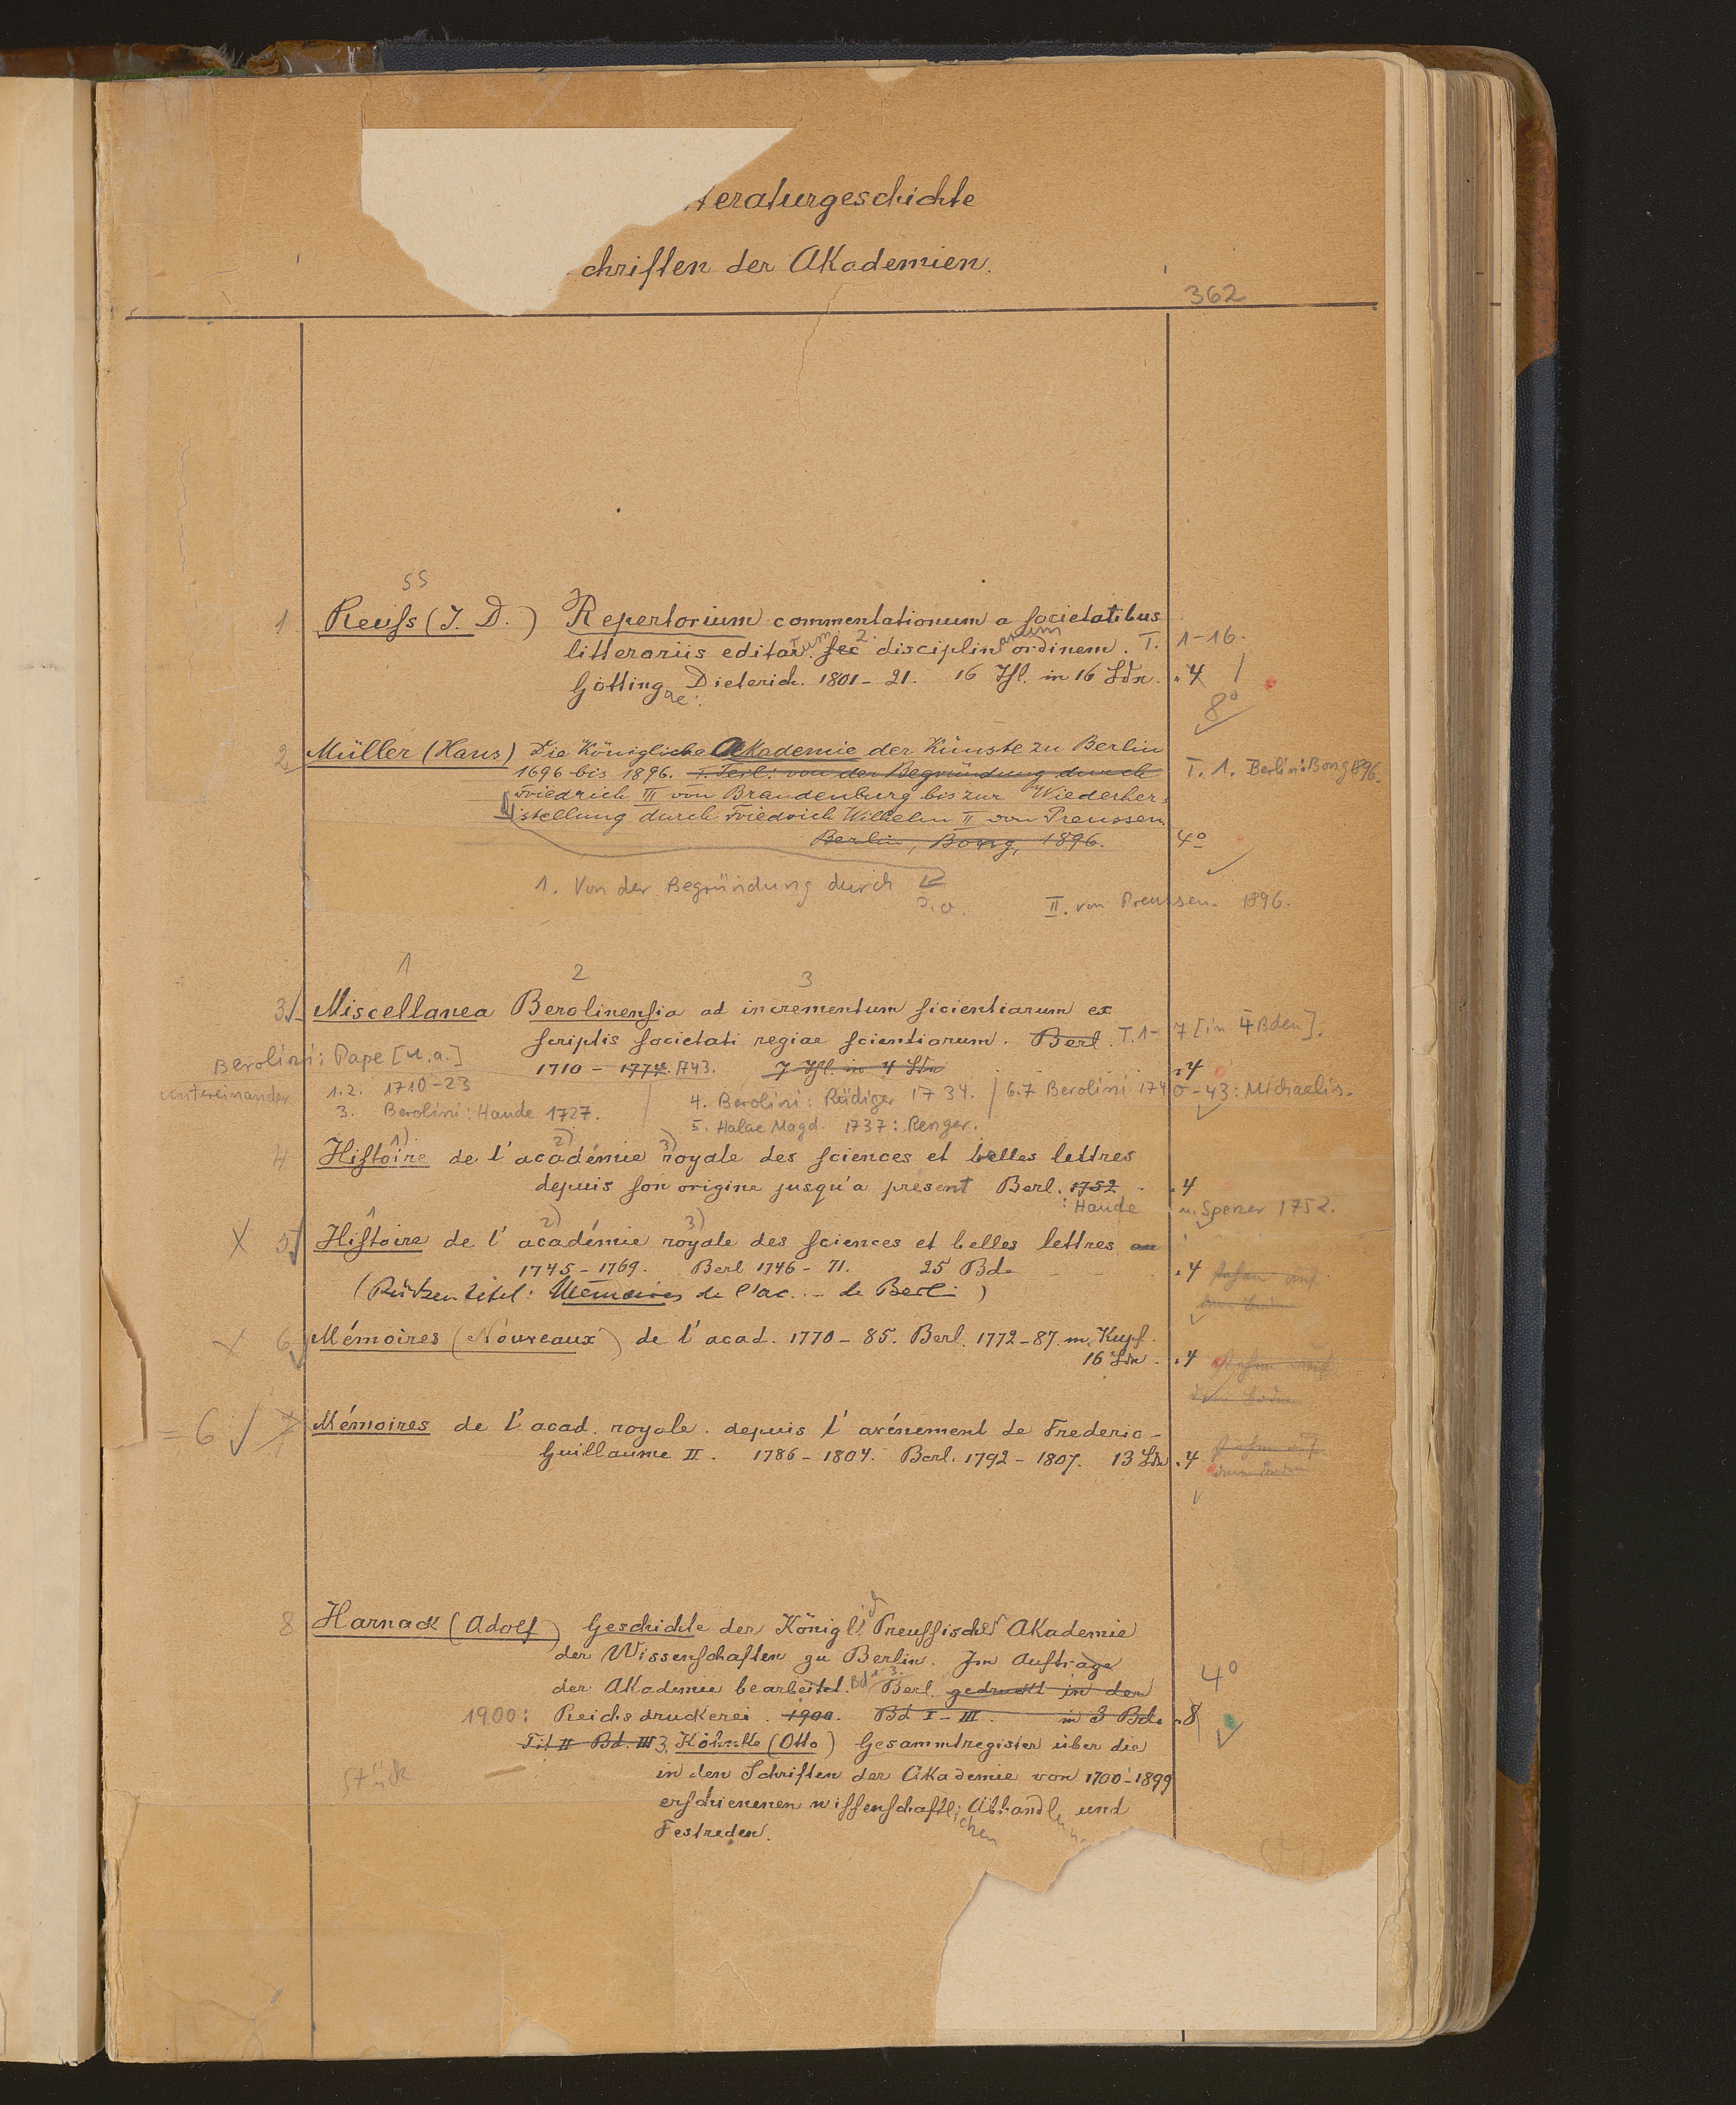 teraturgeschichte
chriften der Akademien.
362
ss
1 Reuſs (J. D.) Repertorium commentationum a ſocietatibus
litterariis editarum. ſec disciplinarum ordinem. T. 1-16.
Götting ae: Dieterich. 1801-21. 16 Thl. in 16 Bdn. 4
8°
2 Müller (Hans) Die Königliche Akademie der Künste zu Berlin
1696 bis 1896. I. Teil: von der Begründung durch T. 1. Berlin: Bong 1896.
Friedrich III von Brandenburg bis zur Wiederher-
stellung durch Friedrich Wilhelm II von Preussen
Berlin, Bong, 1896. 4°
1. Von der Begründung durch
II. von Preussen. 1896.
1 2 3
3 Miscellanea Berolinenſia ad incrementum ſicientiarum ex
ſcriptis ſocietati regiae ſcientiarum. Berl. T. 1-7 [in 4 Bden].
Berolini: Pape [u.a.] 1710-1774. 1743. 7 Thl. in 4 Bdn 4
untereinander 1.2. 1710-23 4. Berolini: Rüdiger 1734. / 6.7 Berolini 1740-43: Michaelis.
3. Berolini: Haude 1727. 5. Halae Magd. 1737: Renger.
1) 2) 3)
4 Hiſtoire de l'académie royale des ſciences et belles lettres
depuis ſon origine jusqu'a présent Berl. 1752 4
: Haude u. Spener 1752.
1 2) 3)
X 5 Hiſtoire de l'académie royale des ſciences et belles lettres
1745-1769. Berl 1746-71. 25 Bde 4
(Rückentitel: Mémoires de l'ac. de Berl.)
X 6 Mémoires (Nouveaux) de l'acad. 1770-85. Berl. 1772-87. m. Kupf.
16 Bdn. 4
= 6 7 Mémoires de l'acad. royale. depuis l'avénement de Frederic-
Guillaume II. 1786-1804. Berl. 1792-1807. 13 Bdn. 4
8 Harnack (Adolf) Geschichte der Königl. Preuſſischen Akademie
der Wissenſchaften zu Berlin. Im Auftrage
4°
der Akademie bearbeitet. Bd 1-3. Berl. gedruckt in der
1900: Reichsdruckerei. 1900. Bd I-III. in 3 Bde 8
Tit II Bd. III 3. Köhnke (Otto) Gesammtregister über die
Stück in den Schriften der Akademie von 1700-1899
erſchienenen wiſſenſchaftlichen Abhandlun und
Festreden.